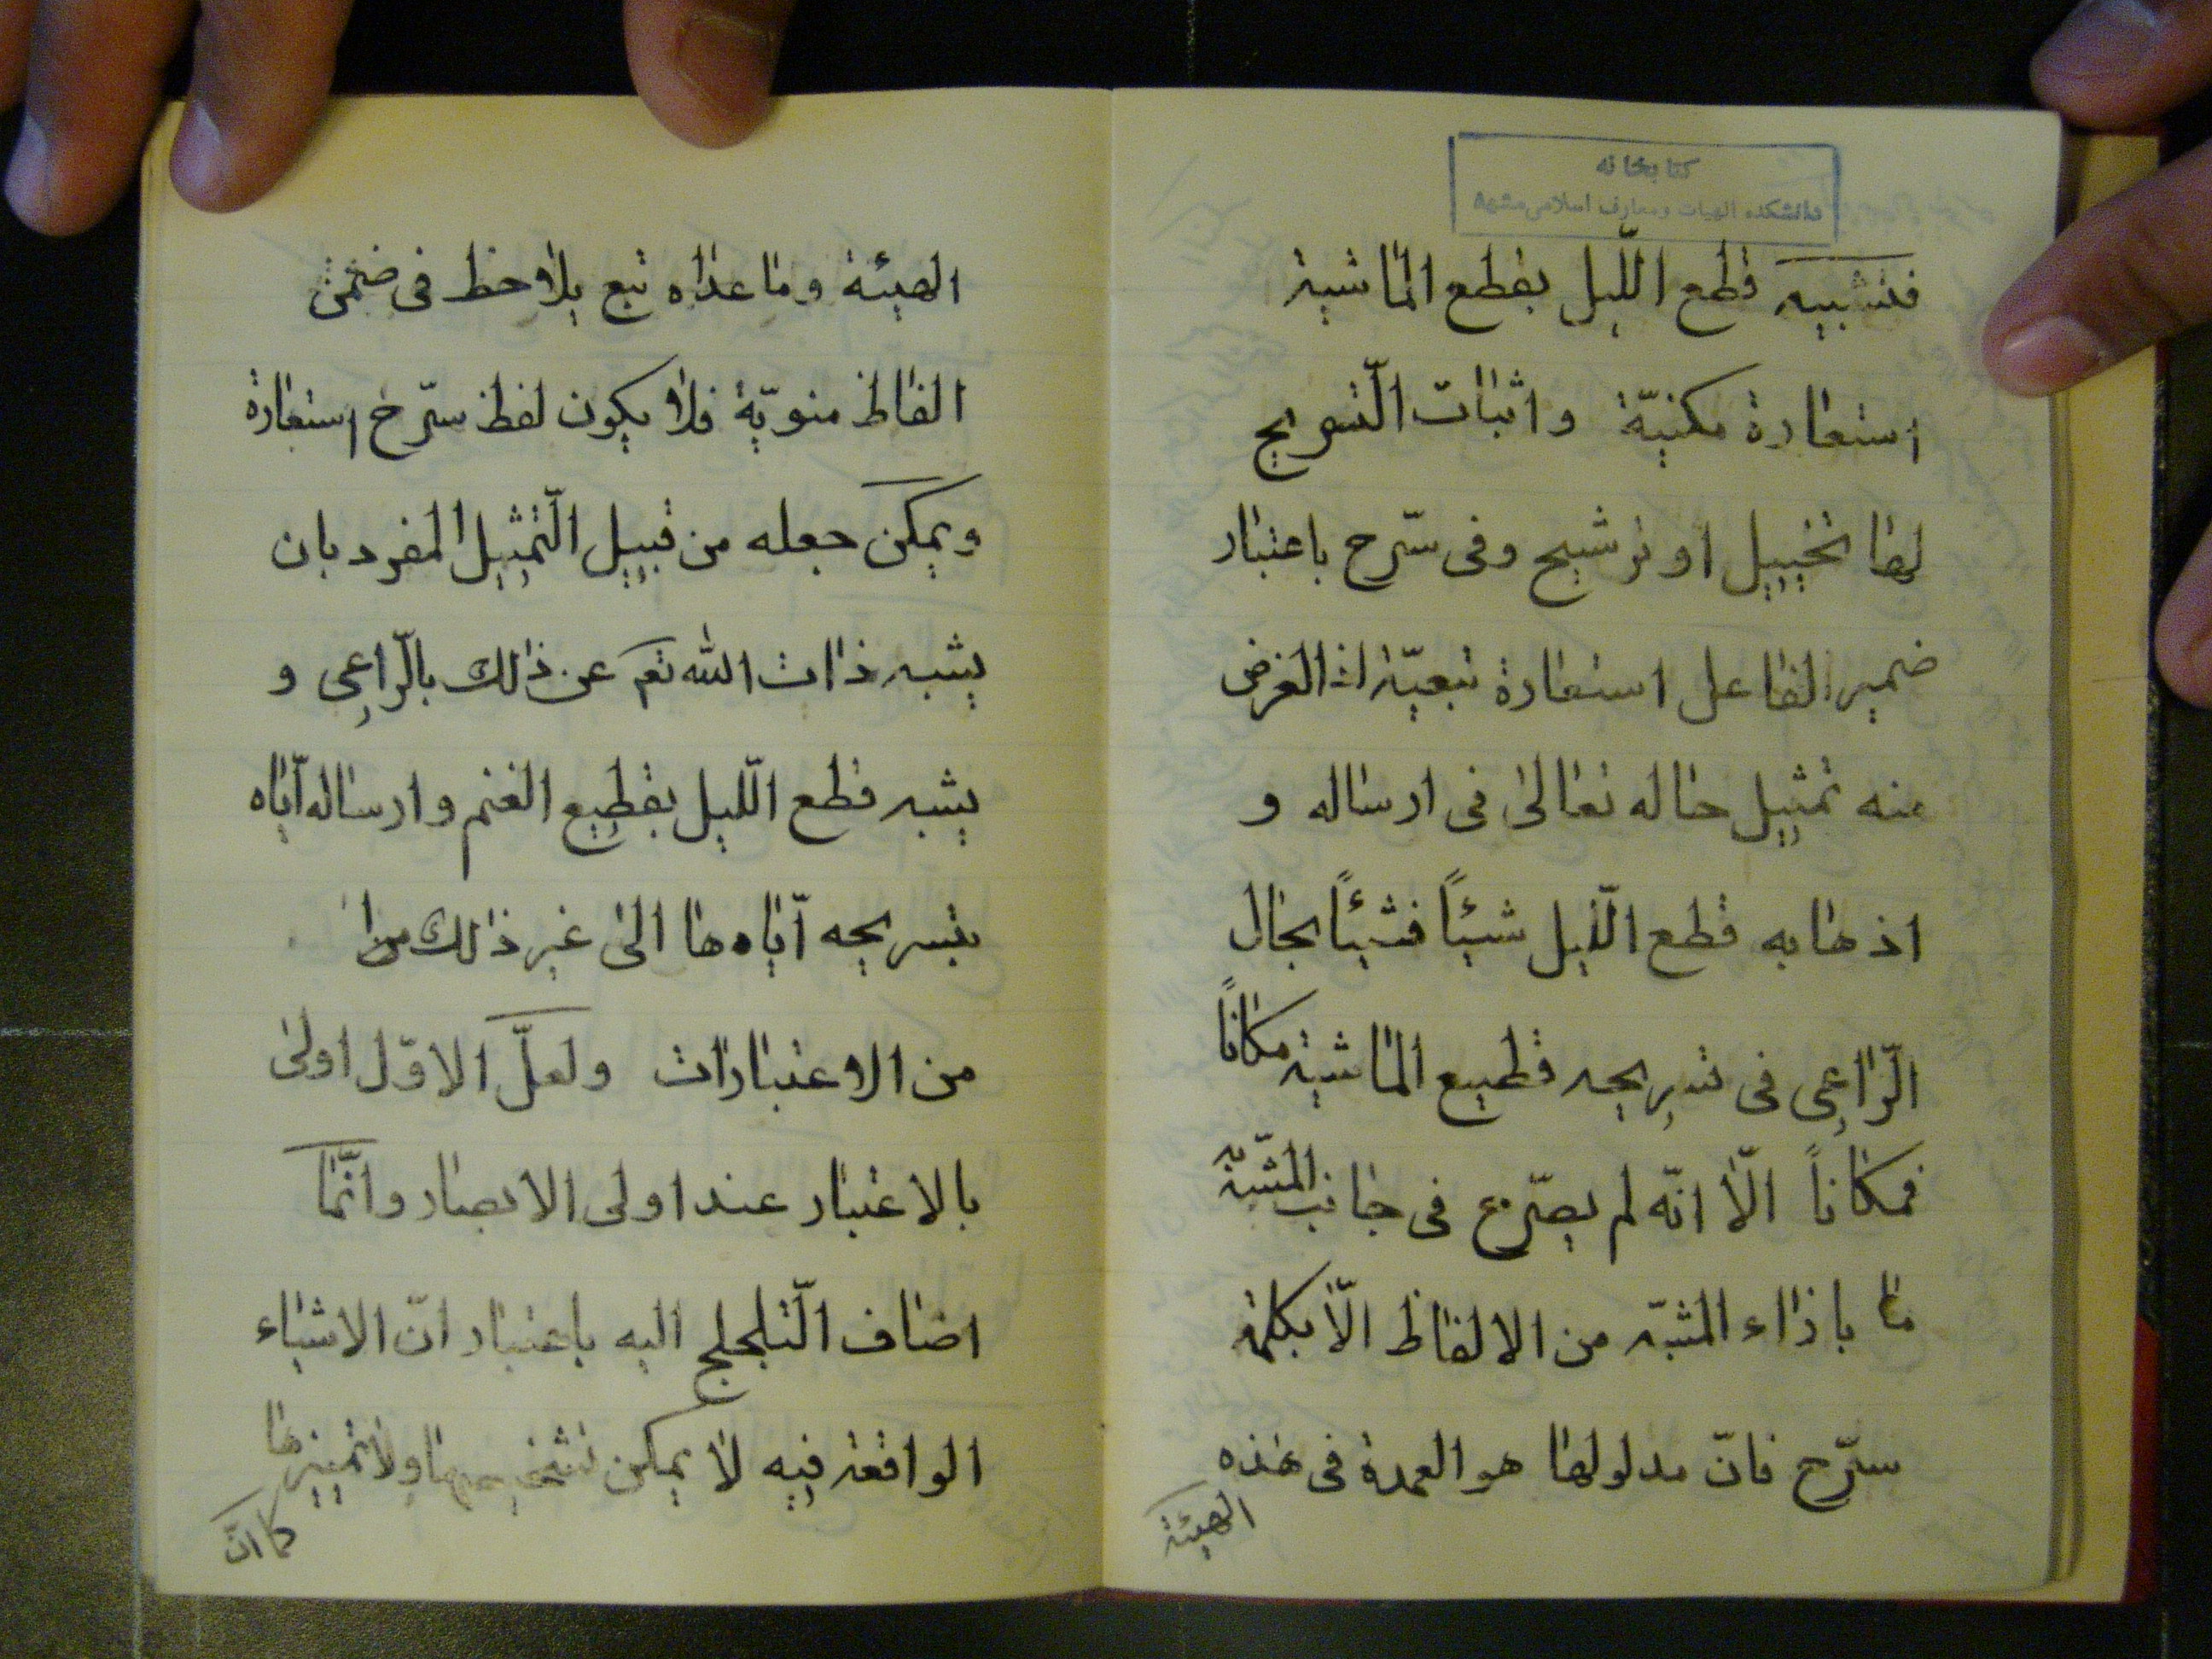 كتابخانه
دانشكده الهيات ومعارف اسلامى مشهد
فتشبيه قطع اللّيل بقطع الماشية
استعارة مكنيّة واثبات التّسريح
لها تخييل او ترشيح وفى سرّح باعتبار
ضمير الفاعل استعارة تبعيّة اذ الغرض
منه تمثيل حاله تعالى فى ارساله و
اذهابه قطع اللّيل شيئاً فشيئاً بحال
الرّاعى فى تسريحه قطيع الماشية مكاناً
فمكاناً الّا انّه لم يصرّح فى جانب المشبّه به
ما باذاء المشبّه من الالفاظ الّا بكلمة
سرّح فانّ مدلولها هو العمدة فى هذه
الهيئة
الهيئة وما عداه تبع يلاحظ فى ضمن
الفاظ منويّة فلا يكون لفظ سرّح استعارة
ويمكن جعله من قبيل التّمثيل المفرد بان
يشبه ذات الله تعم عن ذلك بالرّاعى و
يشبه قطع اللّيل بقطيع الغنم وارساله آيّاه
بتسريحه آيّاه ها الى غير ذلك من
من الاعتبارات ولعلّ الاوّل اولى
بالاعتبار عند اولى الابصار وانّما
اضاف التّلجلج اليه باعتبار انّ الاشياء
الواقعة فيه لا يمكن تشخيصها ولا تميزها
كما انّ